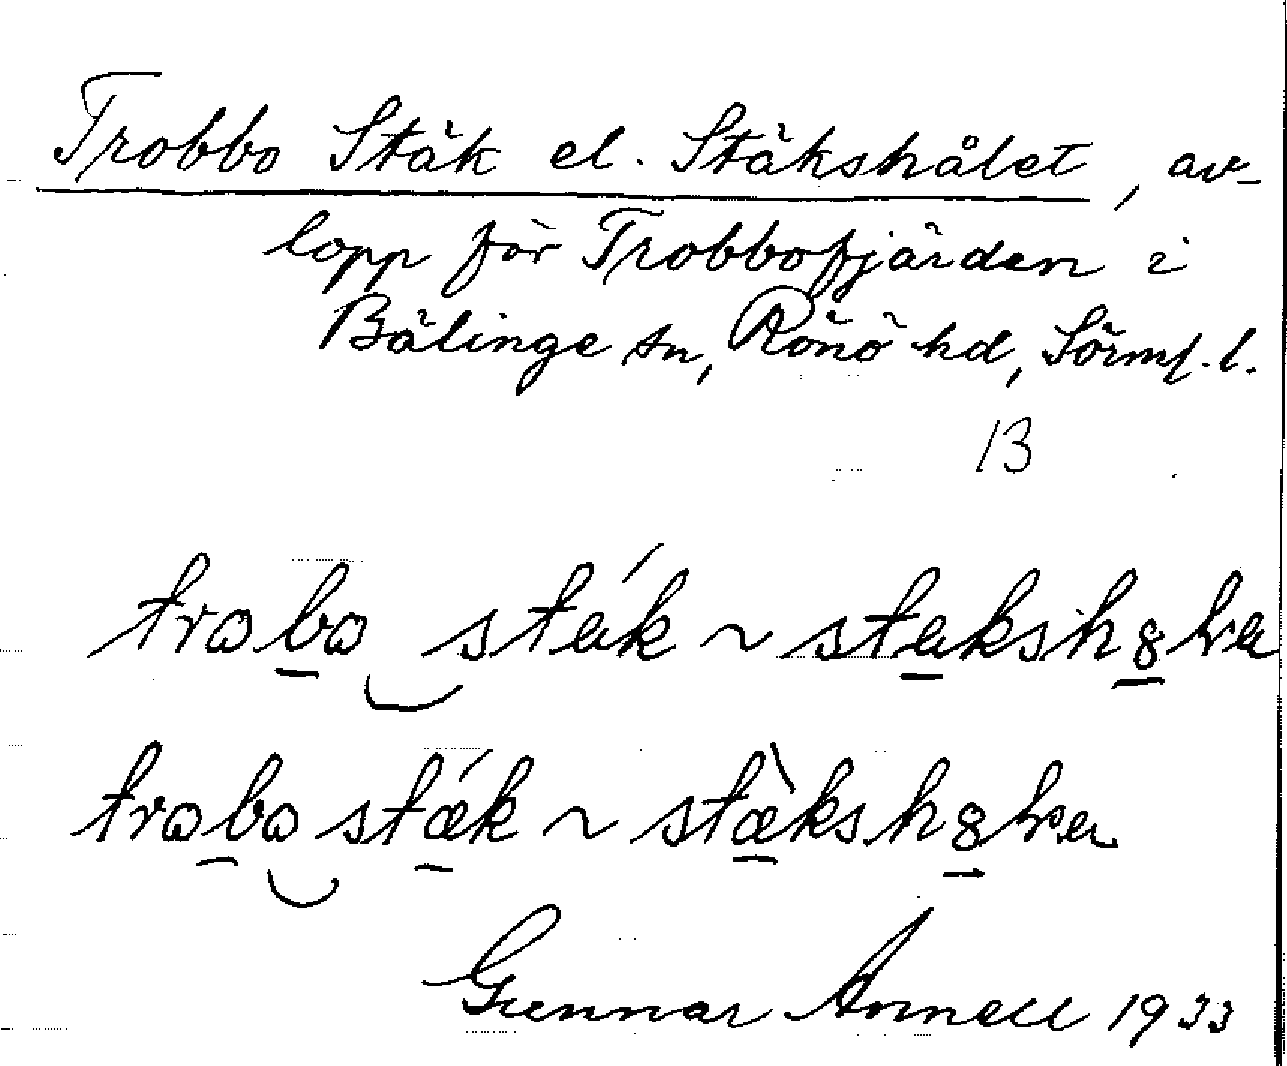 Trobbo Stäk el. Stäkshålet, av-
lopp för Trobbofjärden i
Bälinge sn, Rönö hd, Sörml. l.
13
trobo sták ~
trobo stǽk ~
Gunnar Annell 1933